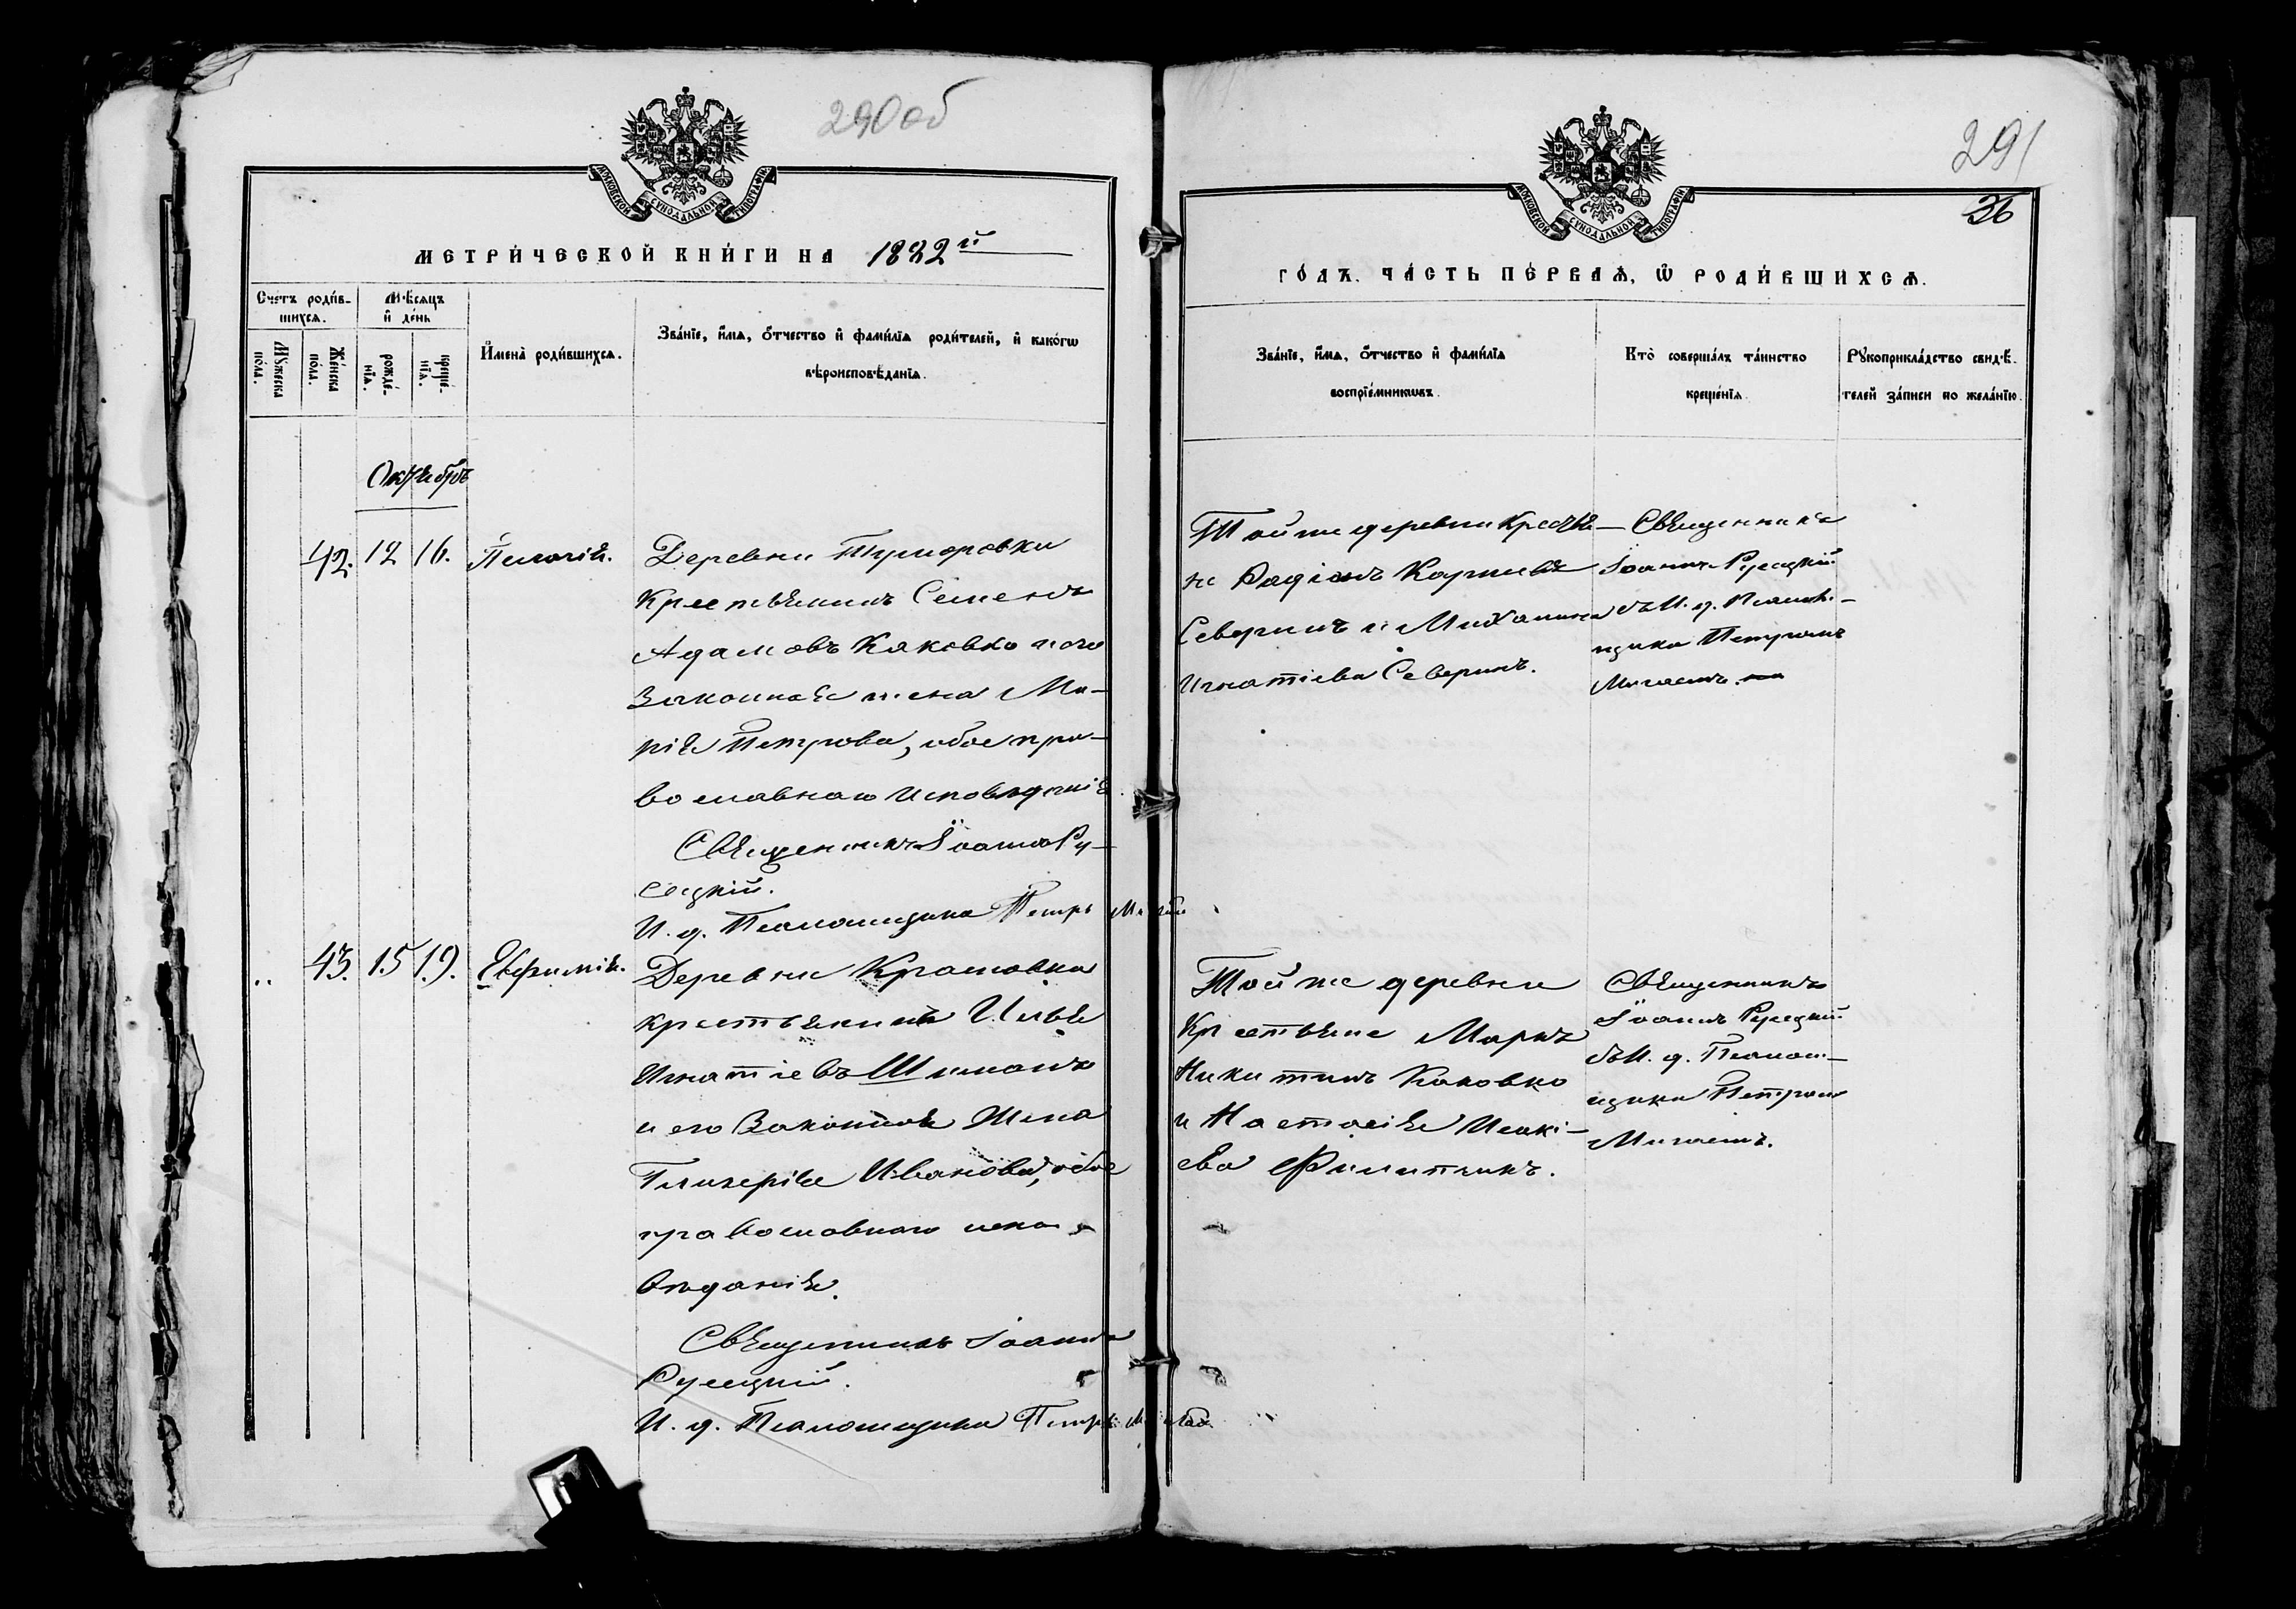 290об
МОСКОВСКОЙ СѴНОДАЛЬНОЙ ТИПОГРАФІИ
МЕТРИ́ЧЕСКОЙ КНИ́ГИ НА 1882й
Счетъ роди́в-
шихсѧ.
Мѣ́сѧцъ
и҆ де́нь
Мꙋ́жеска
по́ла.
Же́нска
по́ла.
рожде́-
нїѧ.
креще́-
нїѧ.
И҆мена̀ роди́вшихсѧ.
Зва́нїе, и҆́мѧ, ѻ҆́тчество и҆ фами́лїѧ роди́телей, и҆ како́гѡ
вѣроисповѣ́данїѧ.
Октябрь
42. 12 16. Пелагія. Деревни
Крестьянинъ Семенъ
Адамовъ Каковко и его
законная жена Ма-
рія Петрова, обое пра-
вославнаго исповѣданія.
Священникъ Іоаннъ Ру-
сецкій.
И. д. Псаломщика Петръ
43. 15 19. Евфимія. Деревни
крестьянинъ Илья
Игнатіевъ Шиманъ
и его законная жена
Гликерія Иванова, обое
православнаго испо-
вѣданія.
Священникъ Іоаннъ
Русецкій.
И. д. Псаломщика Петръ
291
36
МОСКОВСКОЙ СѴНОДАЛЬНОЙ ТИПОГРАФІИ
ГО́ДЪ. ЧА́СТЬ ПЕ́РВАѦ, Ѡ҆ РОДИ́ВШИХСѦ.
Зва́нїе, и҆́мѧ, ѻ҆́тчество и҆ фами́лїѧ
воспрїе́мникѡвъ.
Кто̀ соверша́лъ та́инство
креще́нїѧ
Рꙋкоприкла́дство свидѣ́-
телей за́писи по жела́нїю.
Той же деревни Крестья-
не Радіонъ
Северинъ и
Игнатіева Северинъ.
Священникъ
Іоаннъ Русецкій
съ И. д. Псалом-
щика Петромъ
Той же деревни
Крестьяне Маркъ
Никитинъ Каковко
и Настасія Исакі-
ева Филипчикъ.
Священникъ
Іоаннъ Русецкій
съ И. д. Псалом-
щика Петромъ